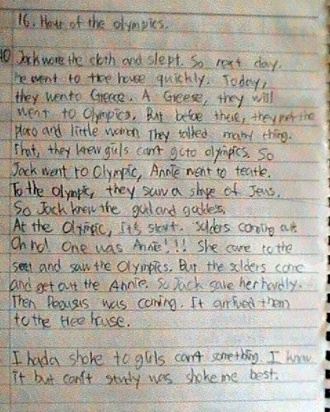 16. Hour of the olympics.
Jack wore the cloth and slept. So next day.
he went to tree house quickly. Today,
they wento Greece. A Greese, they will
went to Olympics. But befoe there, they met the
plato and little woman They talked many thing.
First, they knew girls can't go to olympics. So
Jack went to Olympic, Annie went to teatle.
To the Olympic, they saw a shape of Jeus.
So Jack knew the god and goddess.
At the Olympic, It's start. Solders coming out
Oh no! One was Annie!!! She came to the
seet and saw the Olympics. But the solders come
and get out the Annie. So Jack save her hardly.
Then Pegasus was coming. It arrived them
to the tree house.
I had a shoke to girls can't something. I know
it but can't study was shoke me best.